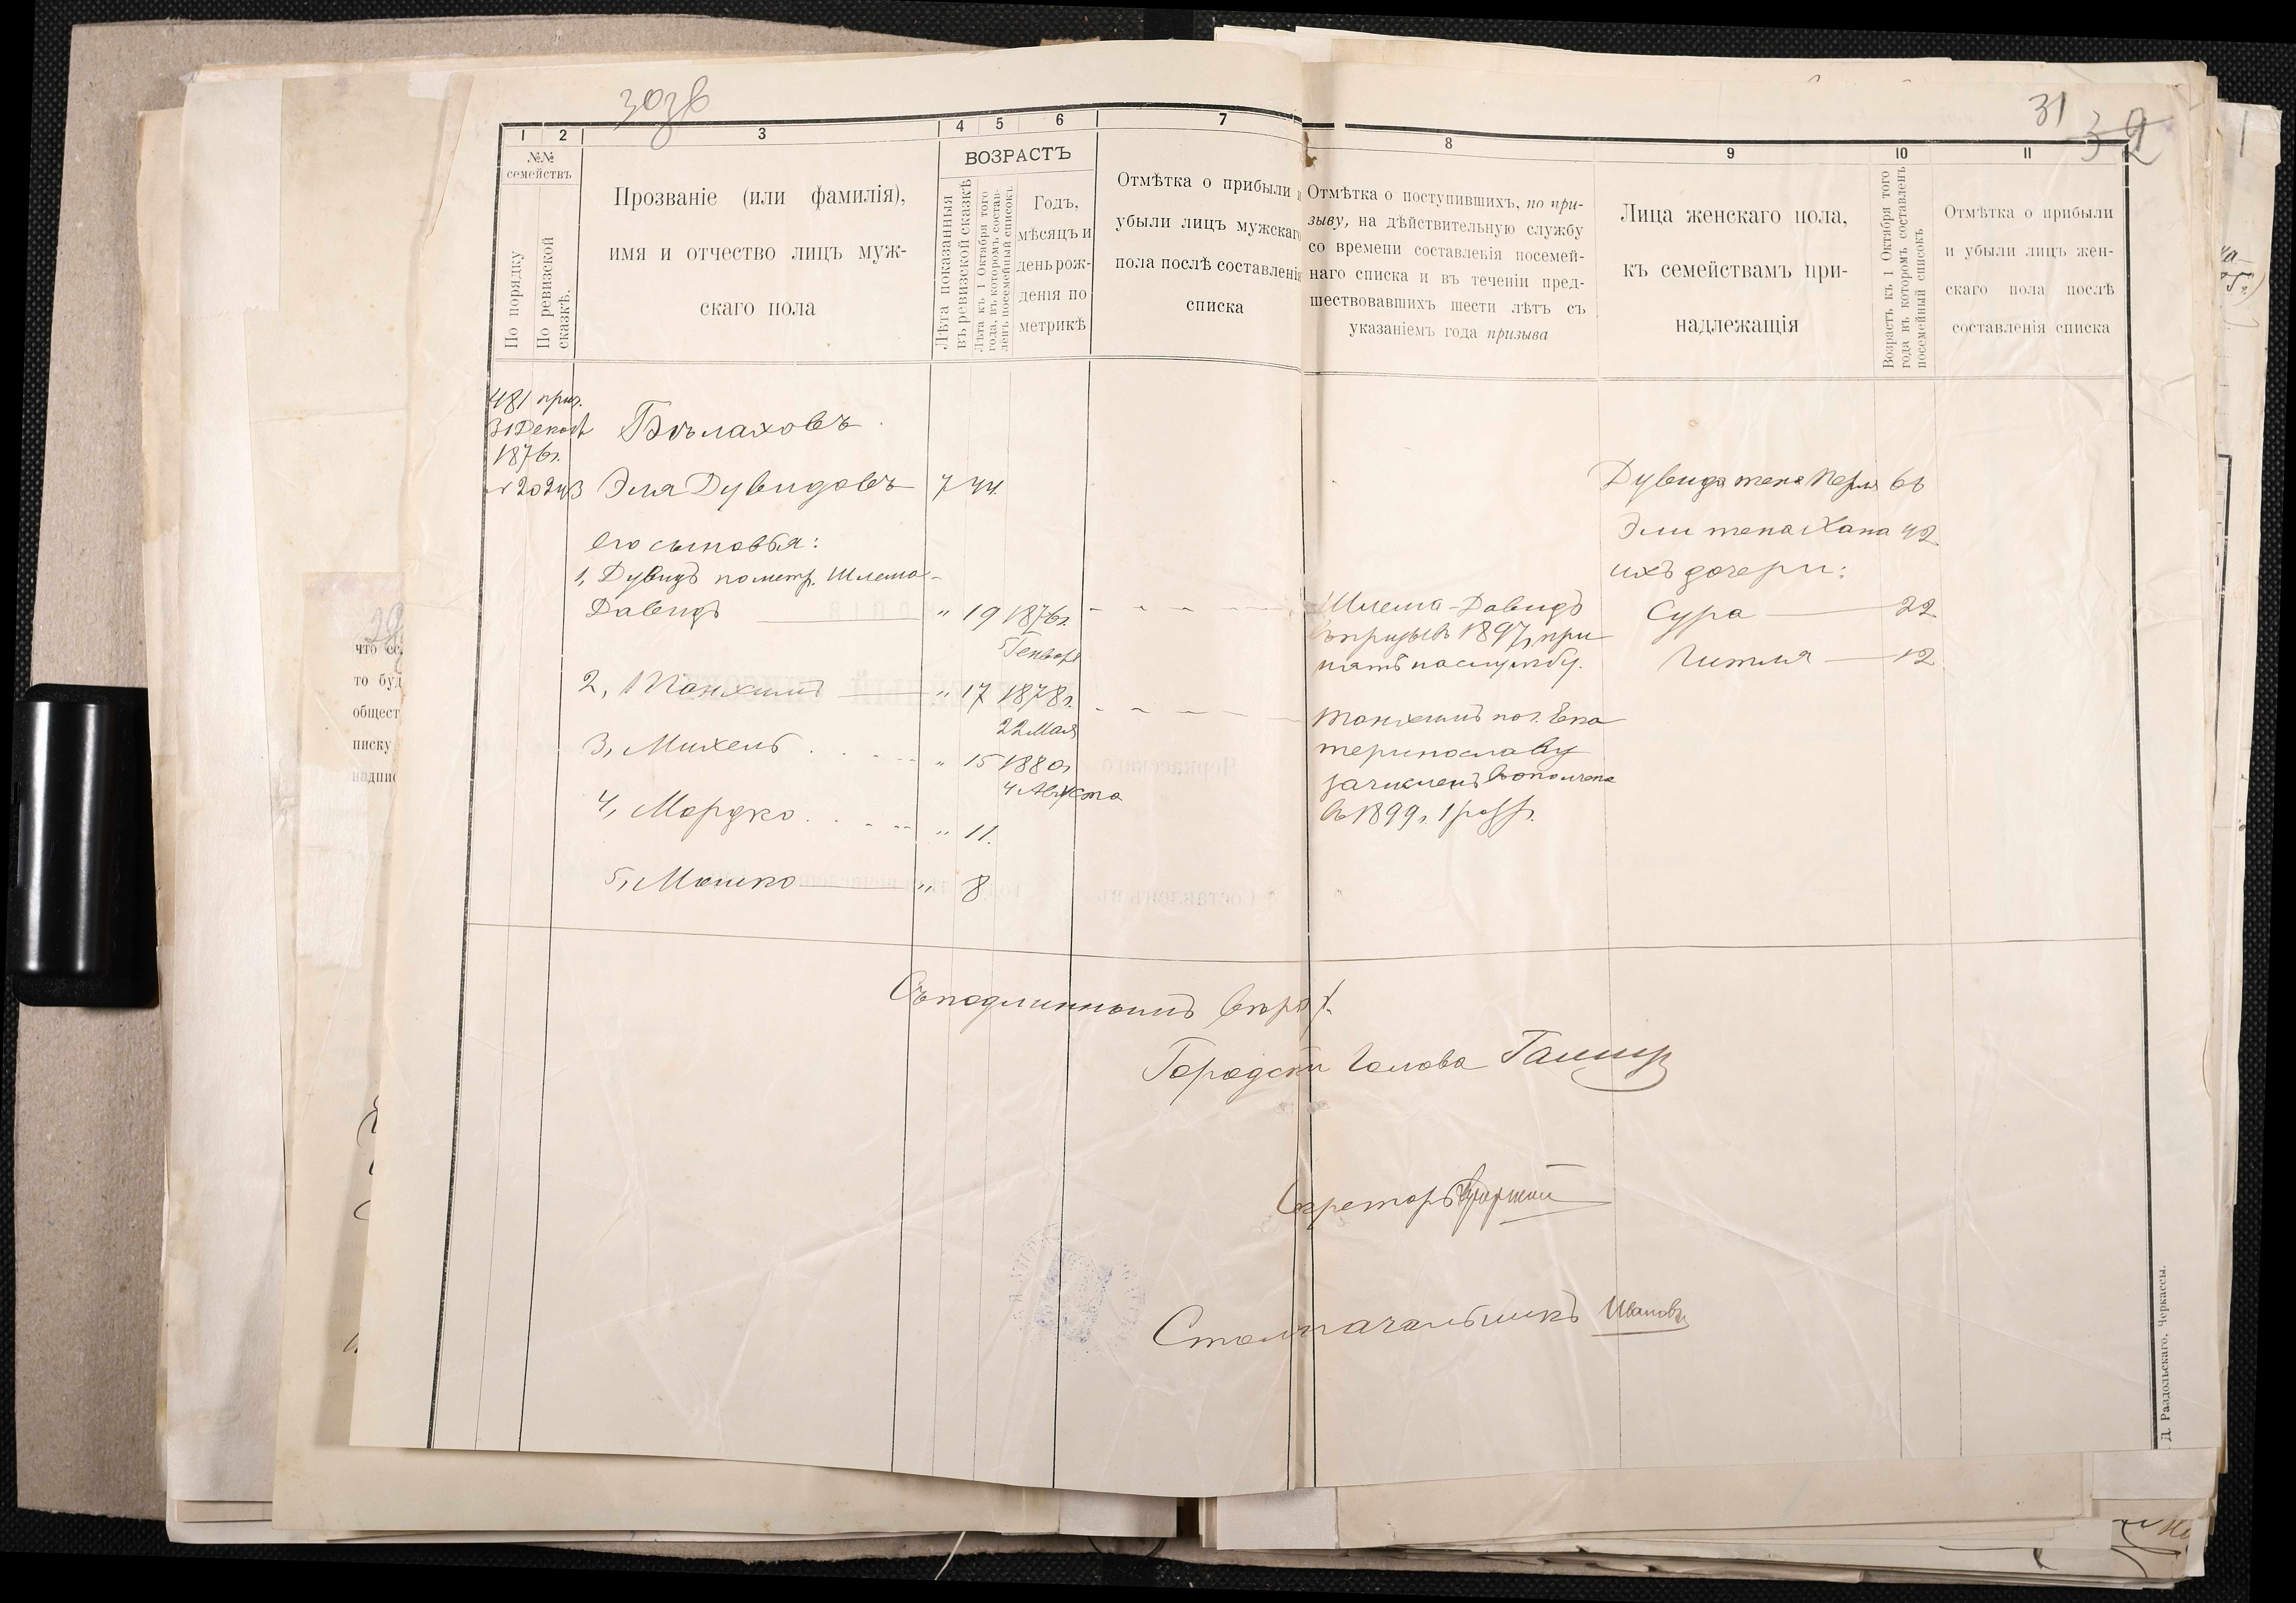 31
1 2 3 4 5 6 7 8 9 10 11
№№ семействъ
По порядку
По ревизской сказкѣ.
Прозваніе (или фамилія),
имя и отчество лицъ муж-
скаго пола
ВОЗРАСТЪ
Лѣта показанныя
въ ревизской сказкѣ
Лѣта къ 1 Октября того
года, въ которомъ состав-
ленъ посемейный списокъ
Годъ,
мѣсяцъ и
день рож-
денія по
метрикѣ
Отмѣтка о прибыли и
убыли лицъ мужскаго
пола послѣ составленія
списка
Отмѣтка о поступившихъ, по при-
зыву, на дѣйствительную службу
со времени составленія посемей-
наго списка и въ теченіи пред-
шествовавшихъ шести лѣтъ съ
указаніемъ года призыва
Лица женскаго пола,
къ семействамъ при-
надлежащія
Возрастъ къ 1 Октября того
года въ которомъ составленъ
посемейный списокъ
Отмѣтка о прибыли
и убыли лицъ жен-
скаго пола послѣ
составленія списка
481 прич.
31 Декаб
1876 г.
Бѣлаховъ
Эля Дувидовъ 7 44.
его сыновья:
1, Дувидъ по метр. Шлема-
Давидъ " 19 1876 г.
5 Генвар
2, Танхимъ " 17 1878 г.
22 Мая
3, Михель " 15 1880 г
4 Августа
4, Мордко " 11.
5, Мошко " 8
Шлема-Давидъ
въ призывъ 1897 г. при
нятъ на службу.
Танхимъ по г. Ека
теринославу
зачисленъ в ополчен
въ 1899 г. 1 разр.
Дувида жена Перля 66
Эли жена Хана 42
ихъ дочери:
Сура 22
Гитля 12
Съ подлиннымъ вѣрно
Городской Голова
Секретарь
Столоначальникъ Ивановъ
Д. Раздольскаго, Черкассы.
что
то буд
общест
писку
надпис